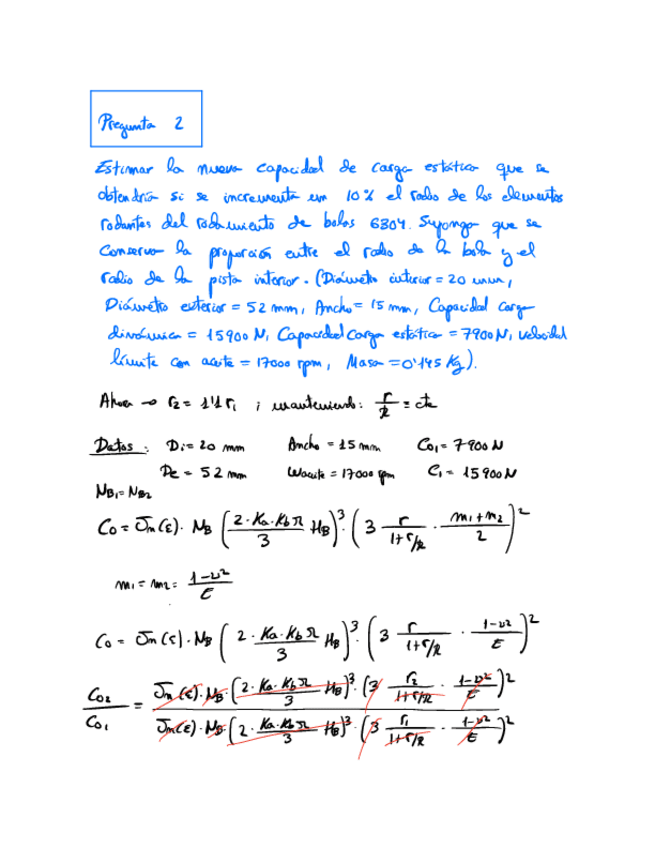 Pregunta 2
Estimar la nueva capacidad de carga estática que se
obtendría si se incrementa en 10% el radio de los elementos
rodantes del rodamiento de bolas 6304. Suponga que se
conserva la proporción entre el radio de la bola y el
radio de la pista interior. (Diámetro interior = 20 mm,
Diámetro exterior = 52 mm, Ancho = 15 mm, Capacidad carga
dinámica = 15900 N, Capacidad carga estática = 7900 N, velocidad
límite con aceite = 17000 rpm, Masa = 0'145 Kg).
Ahora → r₂ = 1'1 r₁ ; manteniendo: r/R = cte
Datos: Di = 20 mm Ancho = 15 mm C₀₁ = 7900 N
De = 52 mm Waceite = 17000 rpm C₁ = 15900 N
NB₁ = NB₂
C₀ = Jm(ε) · NB (2·Ka·Kb π/3 HB)³ · (3 r/(1+r/R) · (m₁+m₂)/2)²
m₁ = m₂ = (1-ν²)/E
C₀ = Jm(ε) · NB (2·Ka·Kb π/3 HB)³ · (3 r/(1+r/R) · (1-ν²)/E)²
C₀₂/C₀₁ = Jm(ε) · NB (2·Ka·Kb π/3 HB)³ · (3 r₂/(1+r/R) · (1-ν²)/E)²
Jm(ε) · NB (2·Ka·Kb π/3 HB)³ · (3 r₁/(1+r/R) · (1-ν²)/E)²